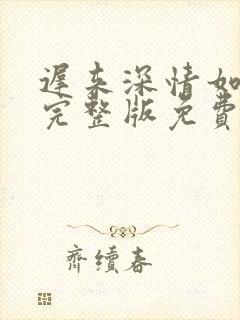 遲来深情如
完整版免費
齊續春